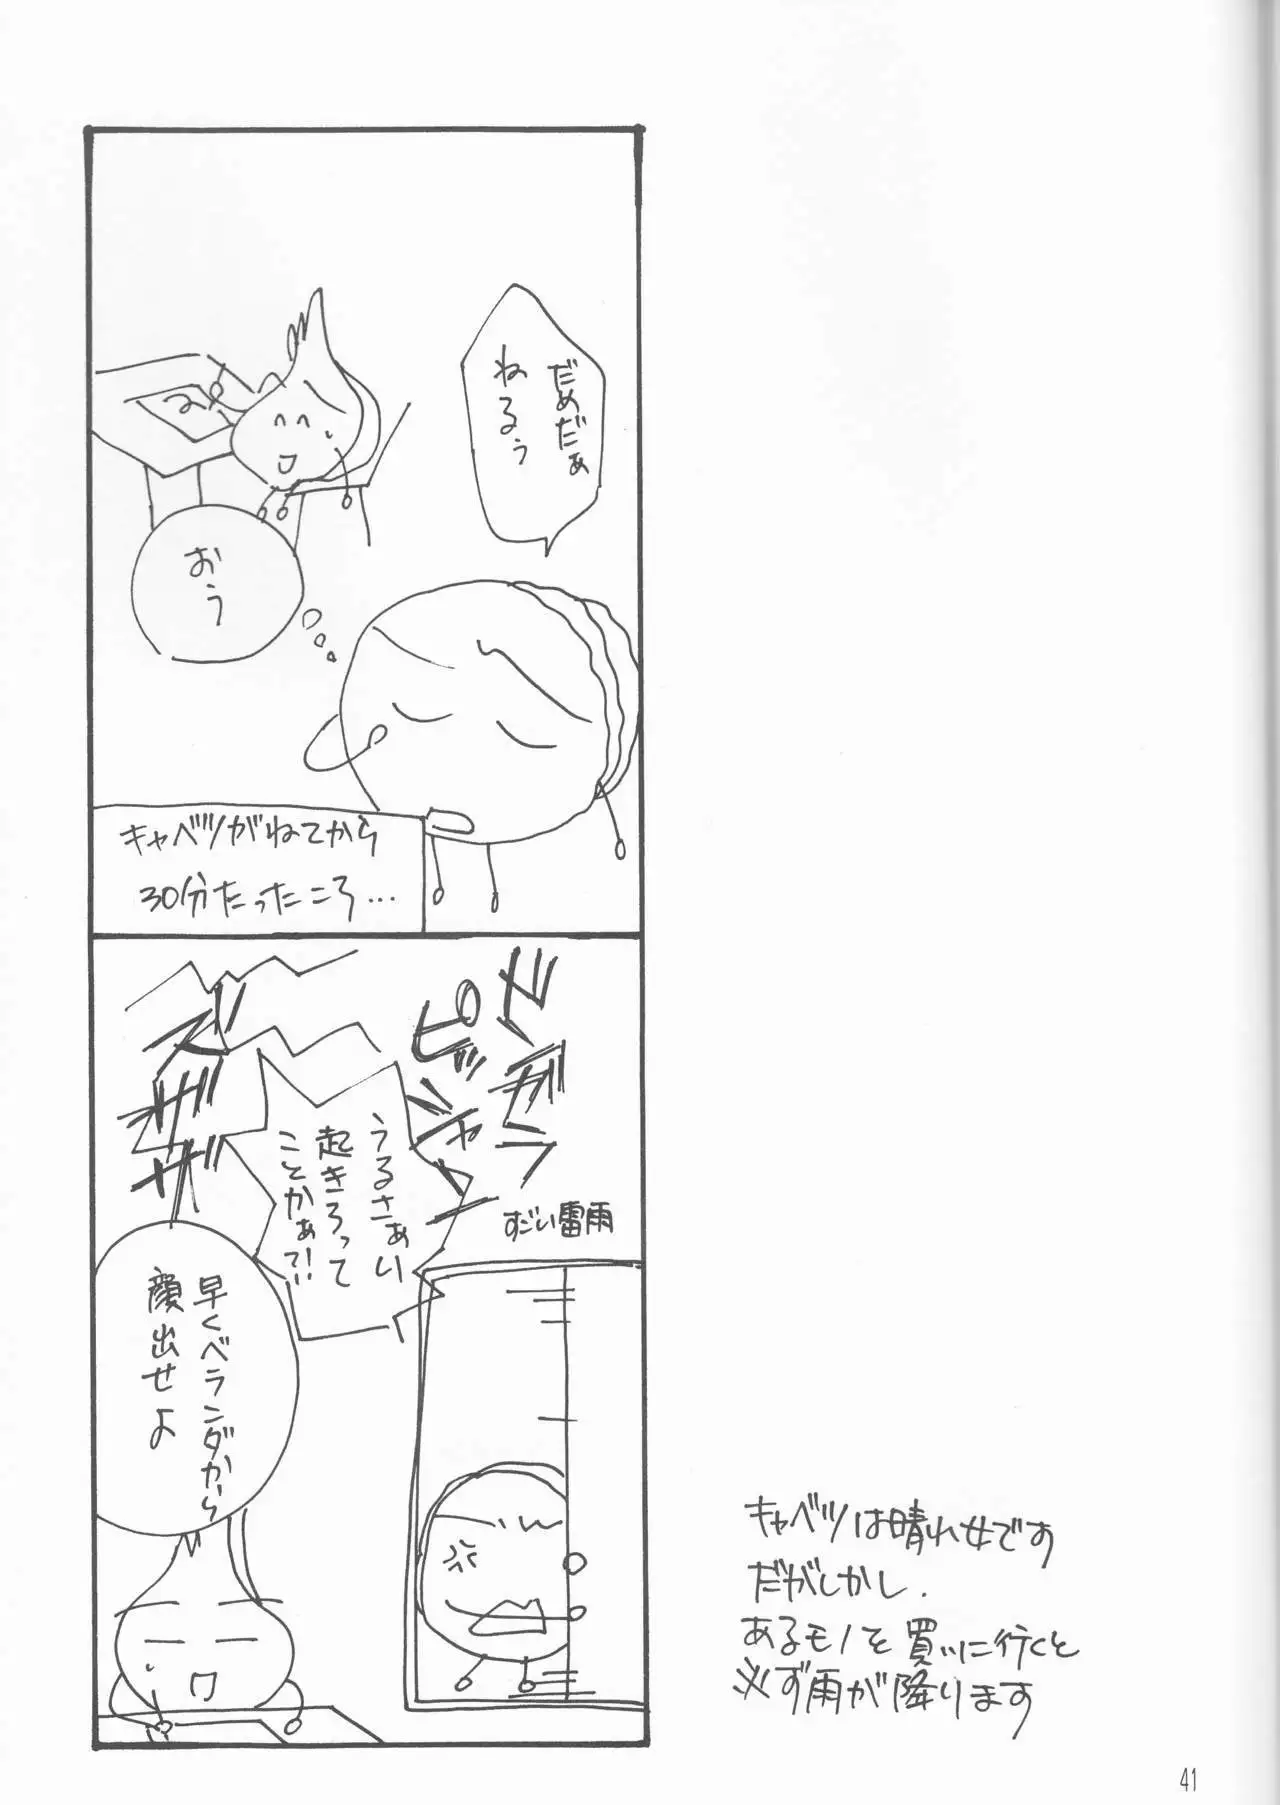 だめだぁ
ねるぅ
おう
キャベツがねてから
30分たったころ…
ドドドラ
ピシャ
ズザザ
すごい雷雨
うるさぁい
起きろって
ことかぁて!!
早くベランダから
顔出せよ
キャベツは晴れ女です
だがしかし.
あるモノを買いに行くと
必ず雨が降ります
41